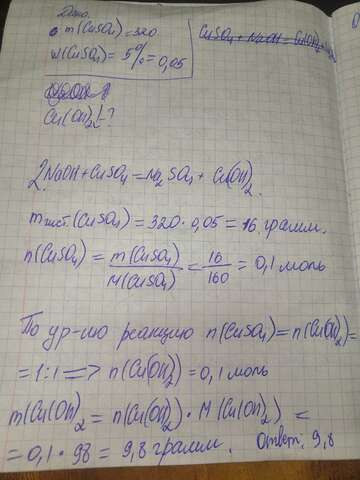 Дано.
m(CuSO4)=320
w(CuSO4)= 5%=0,05
Cu(OH)2-?
2NaOH+CuSO4=Na2SO4+Cu(OH)2
mчист.(CuSO4)=320·0,05=16 грамм.
n(CuSO4)=m(CuSO4)/M(CuSO4)=16/160=0,1 моль
По ур-ию реакцию n(CuSO4)=n(Cu(OH)2)=
=1:1=> n(Cu(OH)2)=0,1 моль
m(Cu(OH)2=n(Cu(OH)2)·M(Cu(OH)2) =
=0,1·98=9,8 грамм. Ответ: 9,8